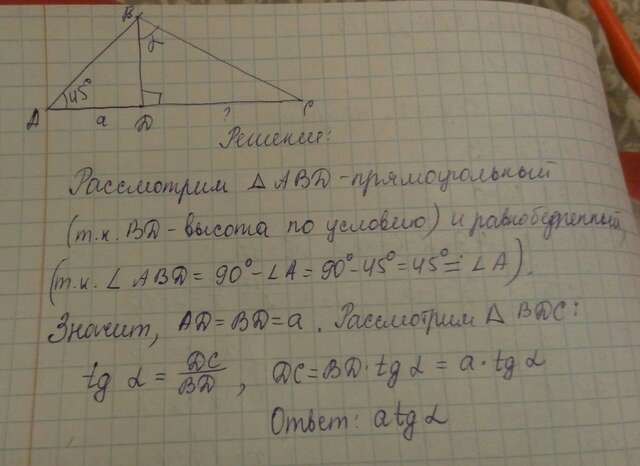 B
α
45°
A a D ? C
Решение:
Рассмотрим △ ABD - прямоугольный
(т.к. BD - высота по условию) и равнобедренный
(т.к. ∠ ABD = 90° - ∠A = 90° - 45° = 45° = ∠A).
Значит, AD = BD = a. Рассмотрим △ BDC:
tg α = DC/BD, DC = BD · tg α = a · tg α
Ответ: a tg α